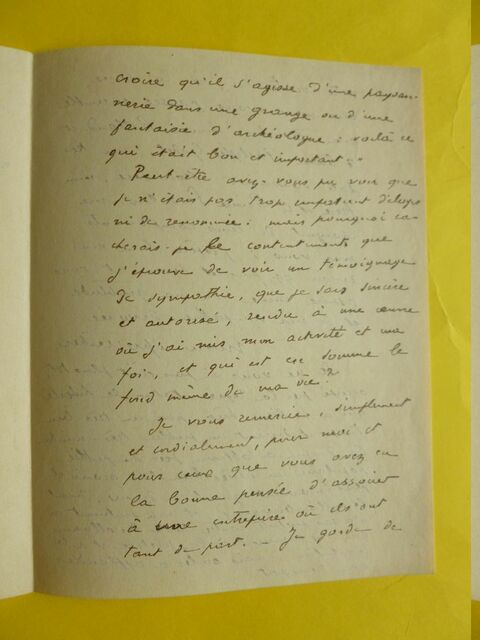 croire qu'il s'agisse d'une paysan-
nerie dans une grange ou d'une
fantaisie d'archéologue : voilà ce
qui était bon et important.
Peut-être avez-vous pu voir que
je n'étais pas trop impatient d'éloges
ni de renommée : mais pourquoi ca-
cherais-je le contentement que
j'éprouve de voir un témoignage
de sympathie, que je sais sincère
et autorisé, rendu à une œuvre
où j'ai mis mon activité et ma
foi, et qui est en somme le
fond même de ma vie ?
Je vous remercie, simplement
et cordialement, pour moi et
pour ceux que vous avez eu
la bonne pensée d'associer
à une entreprise où ils ont
tant de part. — Je garde de